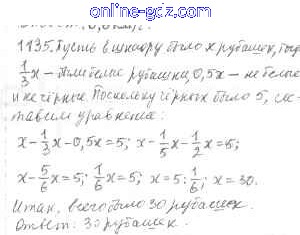 online-gdz.com
1135. Пусть в шкафу было x рубашек, тогда
1/3x – были белые рубашки, 0,5x – не белые
и не чёрные. Поскольку чёрных было 5, сос-
тавим уравнение:
x - 1/3x - 0,5x = 5; x - 1/3x - 1/2x = 5;
x - 5/6x = 5; 1/6x = 5; x = 5 : 1/6; x = 30.
Итак, всего было 30 рубашек.
Ответ: 30 рубашек.